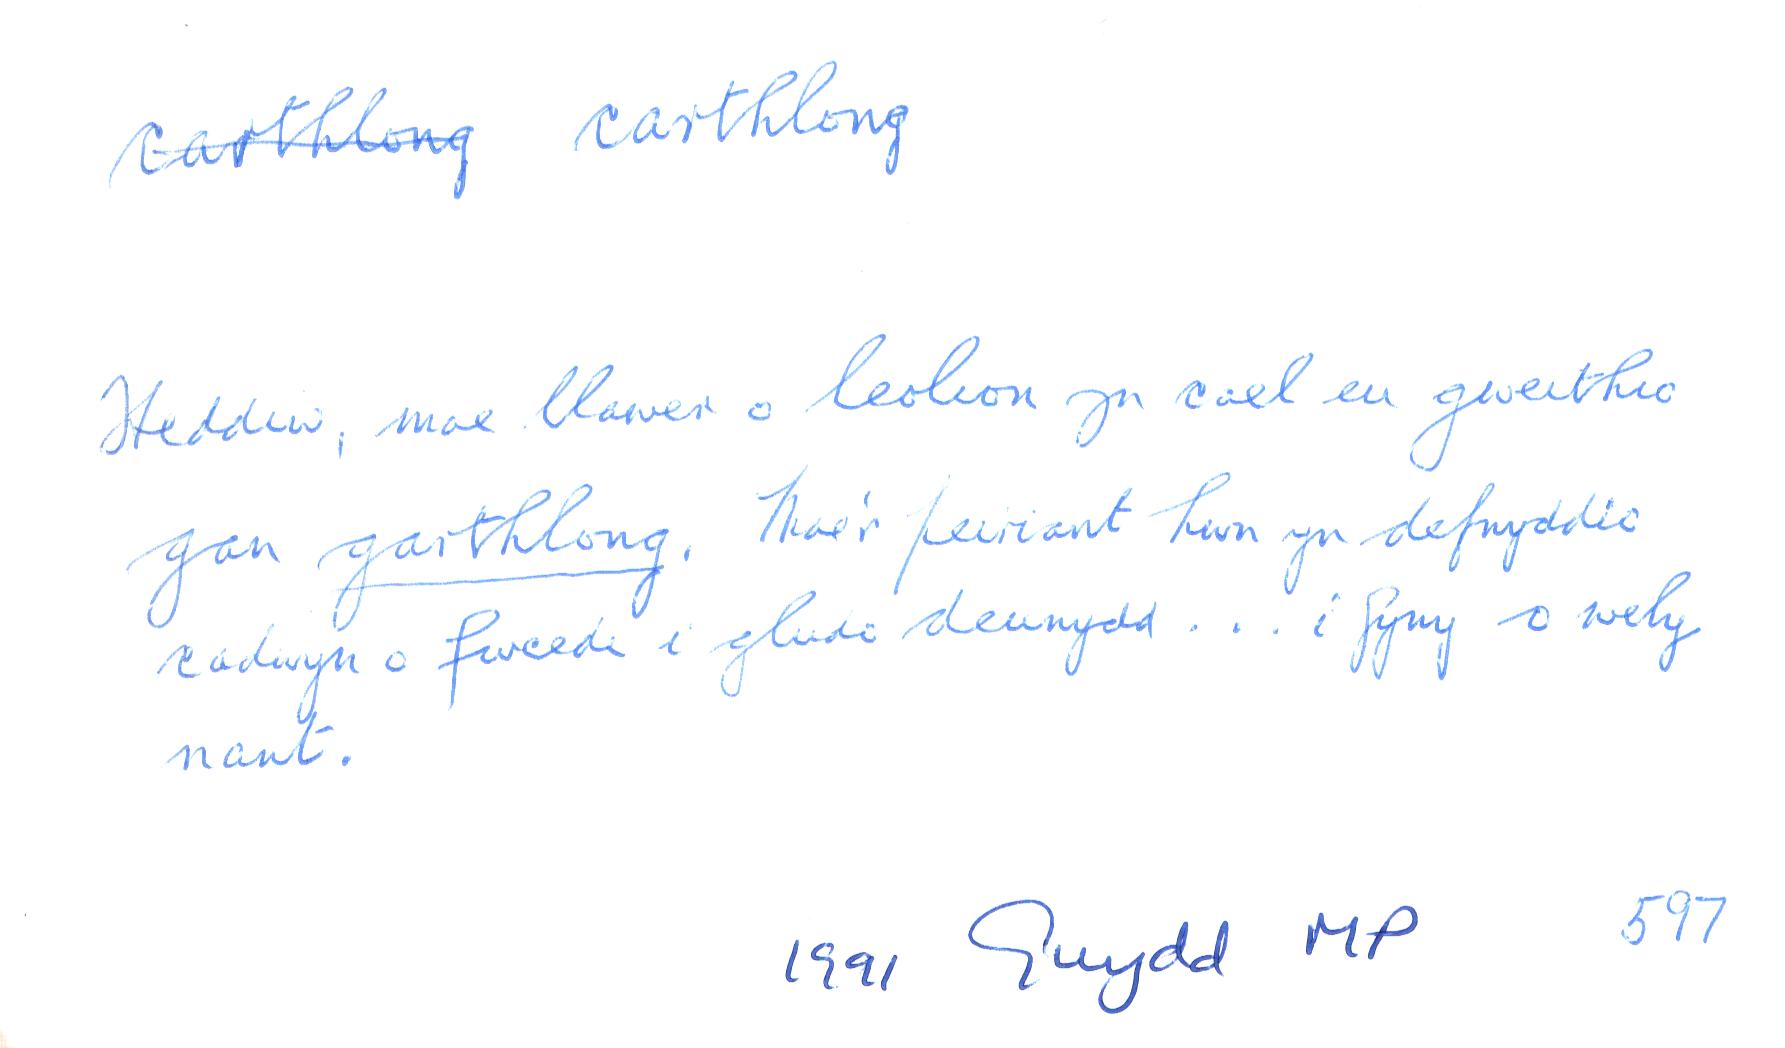 carthlong carthlong
Heddiw, mae llawer o leolion yn cael eu gweithio
gan garthlong. Mae'r peiriant hwn yn defnyddio
cadwyn o fwcedi i gludo deunydd . . . i fyny o wely
nant.
1991 Gwydd MP 597